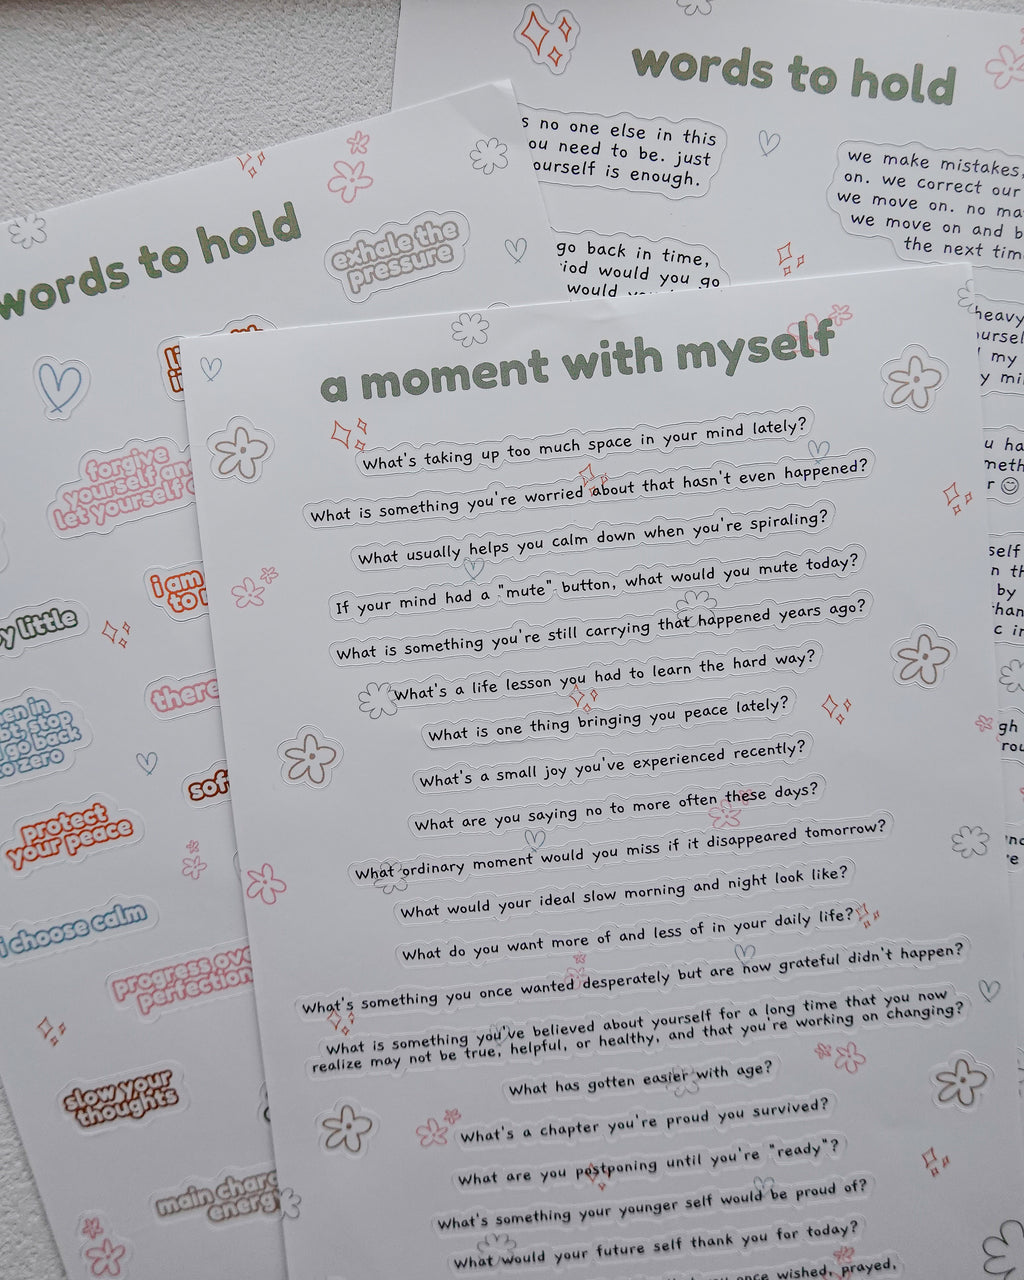 words to hold
s no one else in this
ou need to be. just
ourself is enough.
we make mistakes,
on. we correct our
we move on. no
we move on and b
the next tim
go back in time,
iod would you go
would
heavy
my
u ha
r ☺
self
by
words to hold
exhale the
pressure
forgive
yourself an
let yourself
i am
to
y little
there
en in
bt, stop
go back
to zero
sof
protect
your peace
i choose calm
progress ove
perfection
slow your
thoughts
main chara
energy
a moment with myself
What's taking up too much space in your mind lately?
What is something you're worried about that hasn't even happened?
What usually helps you calm down when you're spiraling?
If your mind had a "mute" button, what would you mute today?
What is something you're still carrying that happened years ago?
What's a life lesson you had to learn the hard way?
What is one thing bringing you peace lately?
What's a small joy you've experienced recently?
What are you saying no to more often these days?
What ordinary moment would you miss if it disappeared tomorrow?
What would your ideal slow morning and night look like?
What do you want more of and less of in your daily life?
What's something you once wanted desperately but are now grateful didn't happen?
What is something you've believed about yourself for a long time that you now
realize may not be true, helpful, or healthy, and that you're working on changing?
What has gotten easier with age?
What's a chapter you're proud you survived?
What are you postponing until you're "ready"?
What's something your younger self would be proud of?
What would your future self thank you for today?
once wished, prayed,